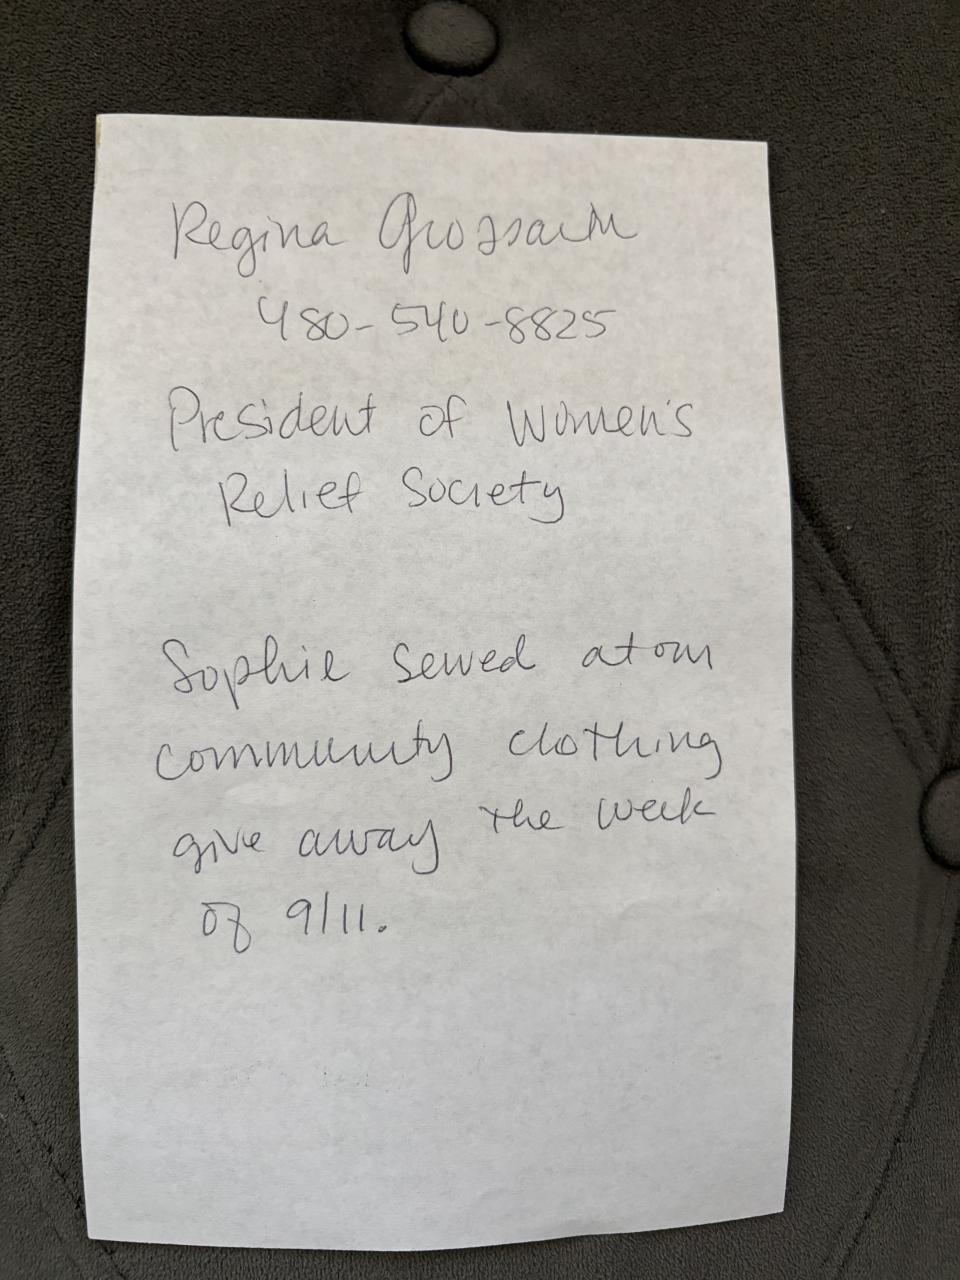 Regina
480-540-8825
President of Women's
Relief Society
Sophie served at our
community clothing
give away the week
of 9/11.